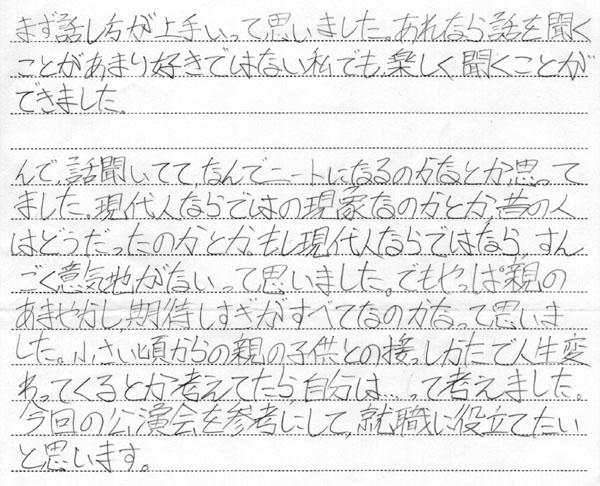 まず話し方が上手いって思いました。あれなら話を聞く
ことがあまり好きではない私でも、楽しく聞くことが
できました。
んで、話聞いてて、なんでニートになるのかなとか思って
ました。現代人ならではの現象なのかとか昔の人
はどうだったのかとか。もし現代人ならではなら、すん
ごく意気地がないって思いました。でもやっぱ親の
あまやかし、期待しすぎがすべてなのかなって思いま
した。小さい頃からの親の子供との接っしかたで人生変
わってくるとか考えてたら、自分は…って考えました。
今回の公演会を参考にして、就職に役立てたい
と思います。